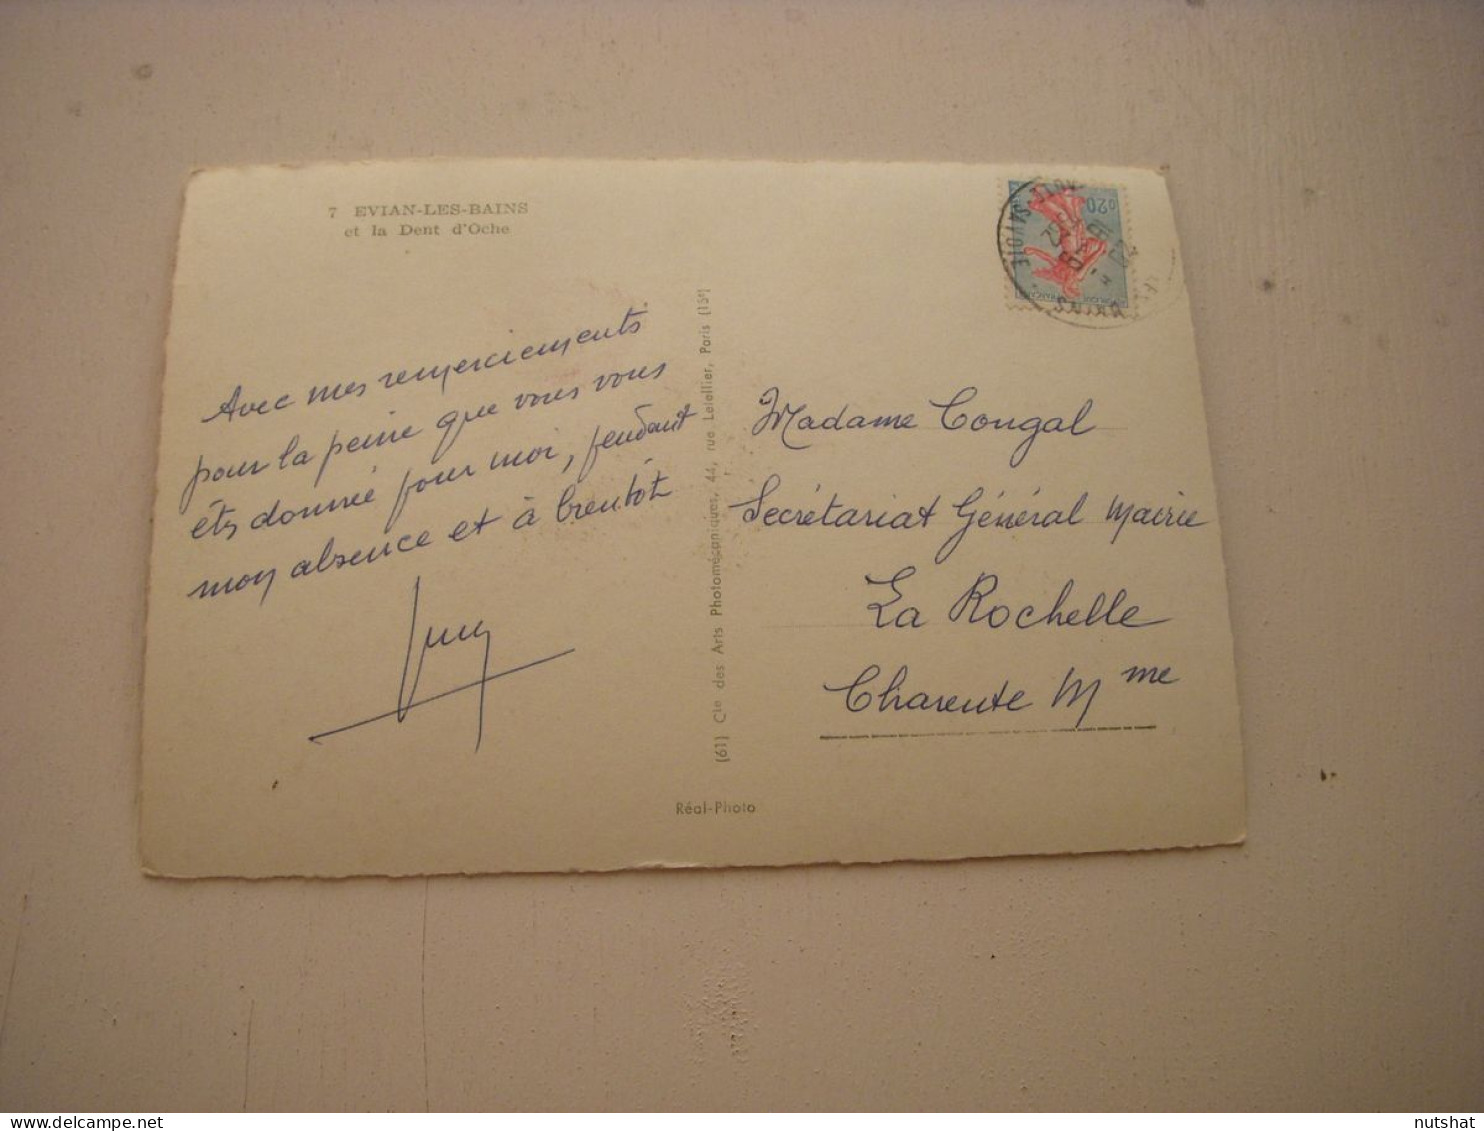 7 EVIAN-LES-BAINS
et la Dent d'Oche
Avec mes remerciements
pour la peine que vous vous
êts donnée pour moi, pendant
mon absence et à bientôt
Madame Cougal
Secrétariat Général Mairie
La Rochelle
Charente Mme
(61) Cie des Arts Photomécaniques, 44, rue Letellier, Paris (15e)
Réal-Photo
0,20
SAVOIE
nutshat